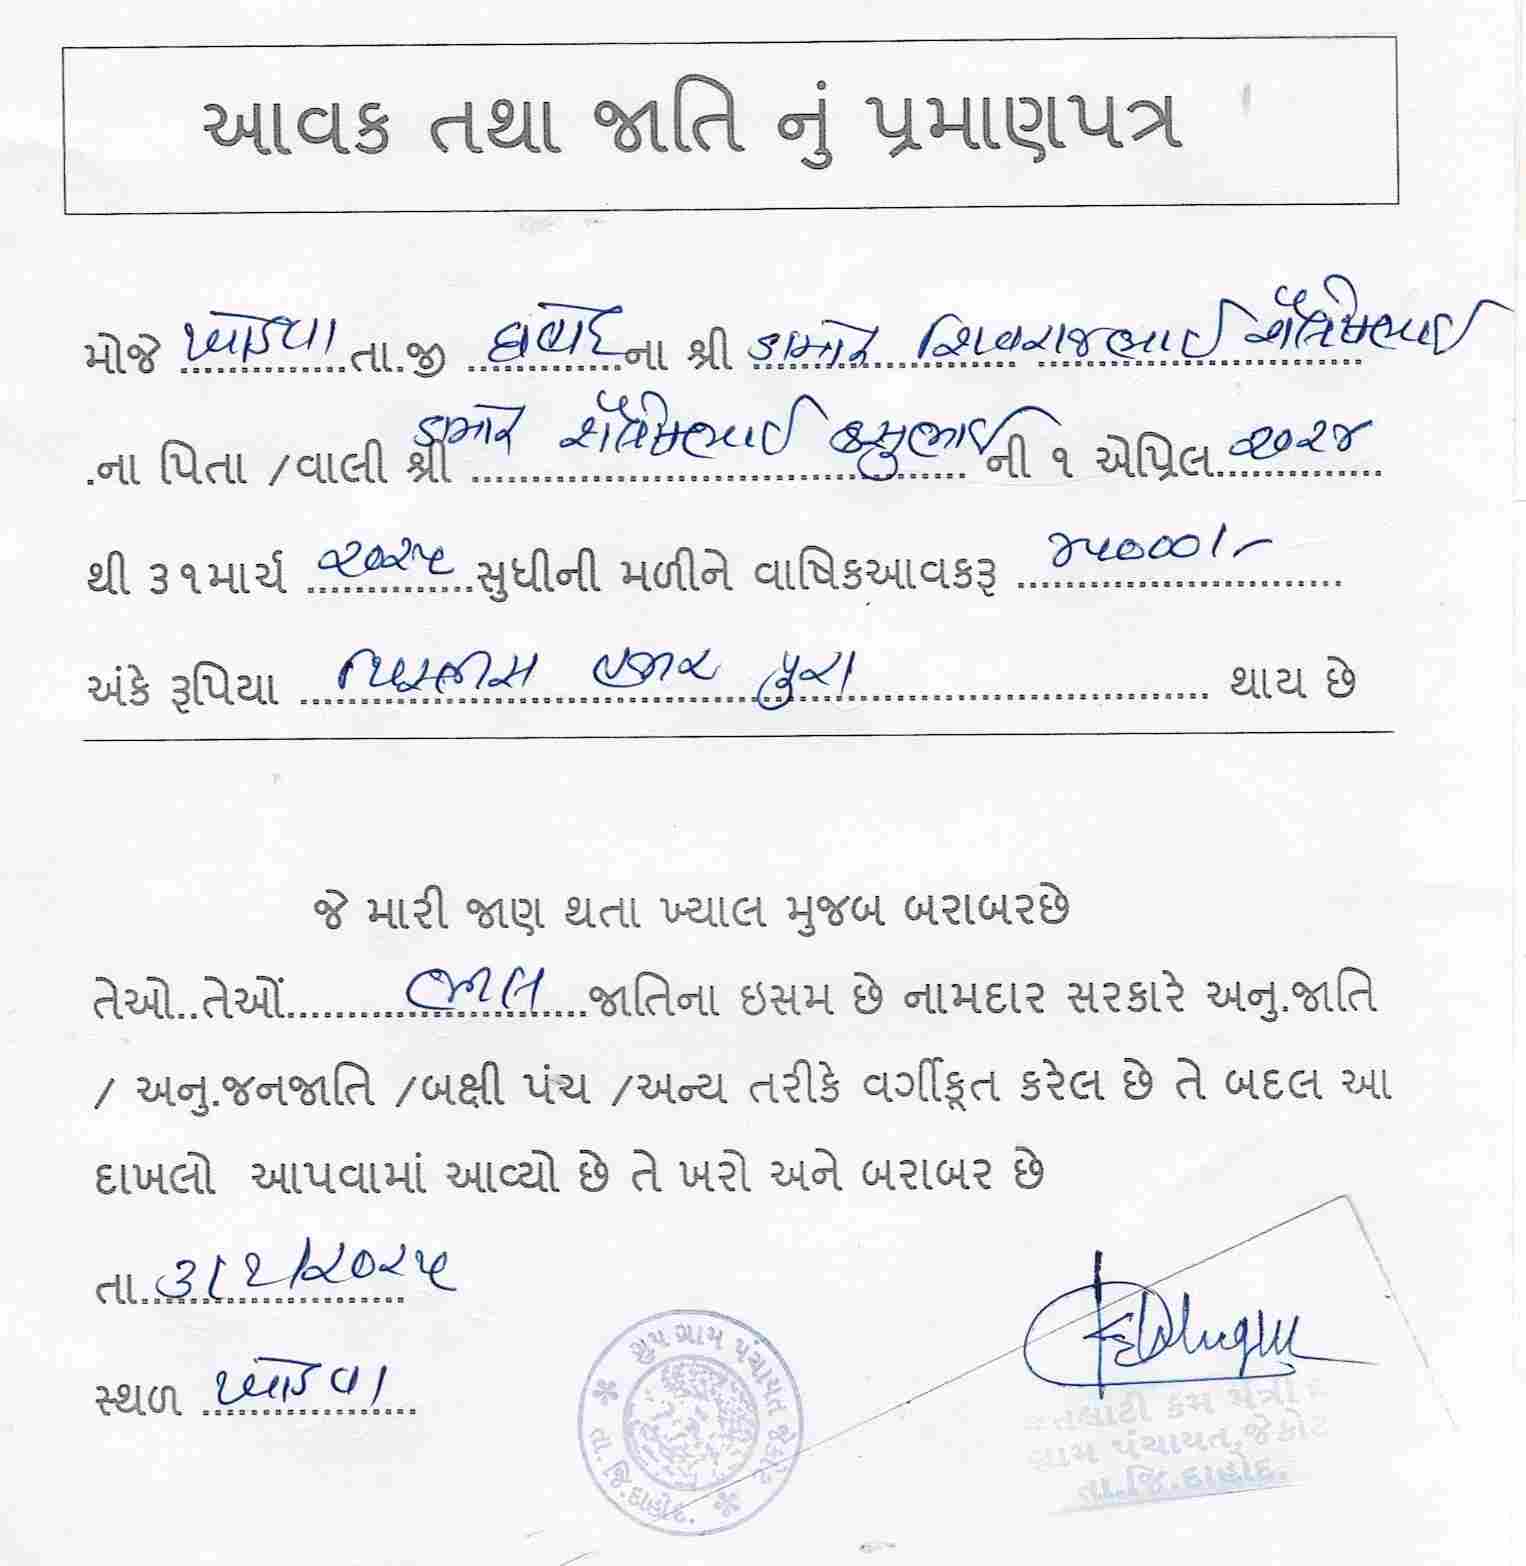 આવક તથા જાતિ નું પ્રમાણપત્ર
મોજે ............... તા.જી દાહોદ ના શ્રી ડામોર શિવરાજભાઈ શૈલેષભાઈ
.ના પિતા /વાલી શ્રી ડામોર શૈલેષભાઈ ની ૧ એપ્રિલ ૨૦૨૪
થી ૩૧માર્ચ ૨૦૨૫ સુધીની મળીને વાષિકઆવકરૂ ૪૫૦૦૦/-
અંકે રૂપિયા પિસ્તાલીસ હજાર પુરા થાય છે
જે મારી જાણ થતા ખ્યાલ મુજબ બરાબરછે
તેઓ..તેઓં ભીલ જાતિના ઇસમ છે નામદાર સરકારે અનુ.જાતિ
/ અનુ.જનજાતિ /બક્ષી પંચ /અન્ય તરીકે વર્ગીકૃત કરેલ છે તે બદલ આ
દાખલો આપવામાં આવ્યો છે તે ખરો અને બરાબર છે
તા. ૩/૨/૨૦૨૫
સ્થળ
ગ્રામ પંચાયત જેકોટ
તા.જિ.દાહોદ.
તલાટી કમ મંત્રી
ગ્રામ પંચાયત,જેકોટ
તા.જિ.દાહોદ.